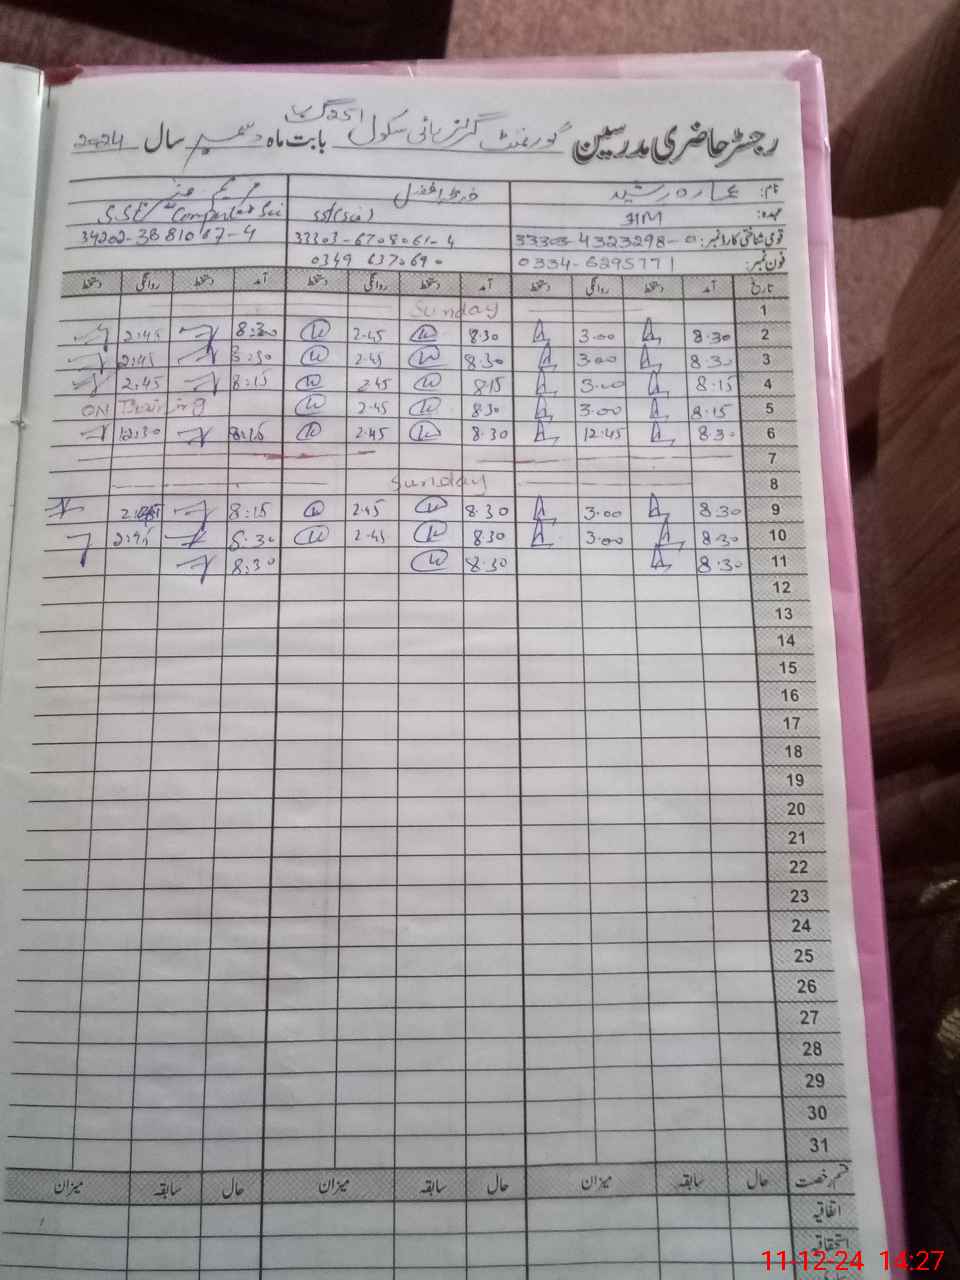 رجسٹر حاضری مدرسین گورنمنٹ گرلز ہائی سکول 251 گ ب بابت ماہ دسمبر سال 2024
نام: عمارہ رشید
عہدہ: HM SST(Sci) SSE Computer Sci
قومی شناختی کارڈ نمبر: 33303-4323298-0 33303-6708061-4 34202-3881067-4
فون نمبر: 0334-6295771 0349 6370690
تاریخ آمد دستخط روانگی دستخط آمد دستخط روانگی دستخط آمد دستخط روانگی دستخط
1 Sunday
2 8.30 3.00 8.30 2.45 8:30 2:45
3 8.30 3.00 8.30 2.45 8:30 2:45
4 8.15 3.00 8.15 2.45 8:15 2:45
5 8.15 3.00 8.30 2.45 ON Training
6 8.30 12.45 8.30 2.45 8:15 12:30
7
8 Sunday
9 8.30 3.00 8.30 2.45 8:15
10 8.30 3.00 8.30 2.45 8:30 2:45
11 8.30 8.30 8:30
12
13
14
15
16
17
18
19
20
21
22
23
24
25
26
27
28
29
30
31
قسم رخصت حال سابقہ میزان حال سابقہ میزان حال سابقہ میزان
اتفاقیہ
استحقاقیہ
11-12-24 14:27